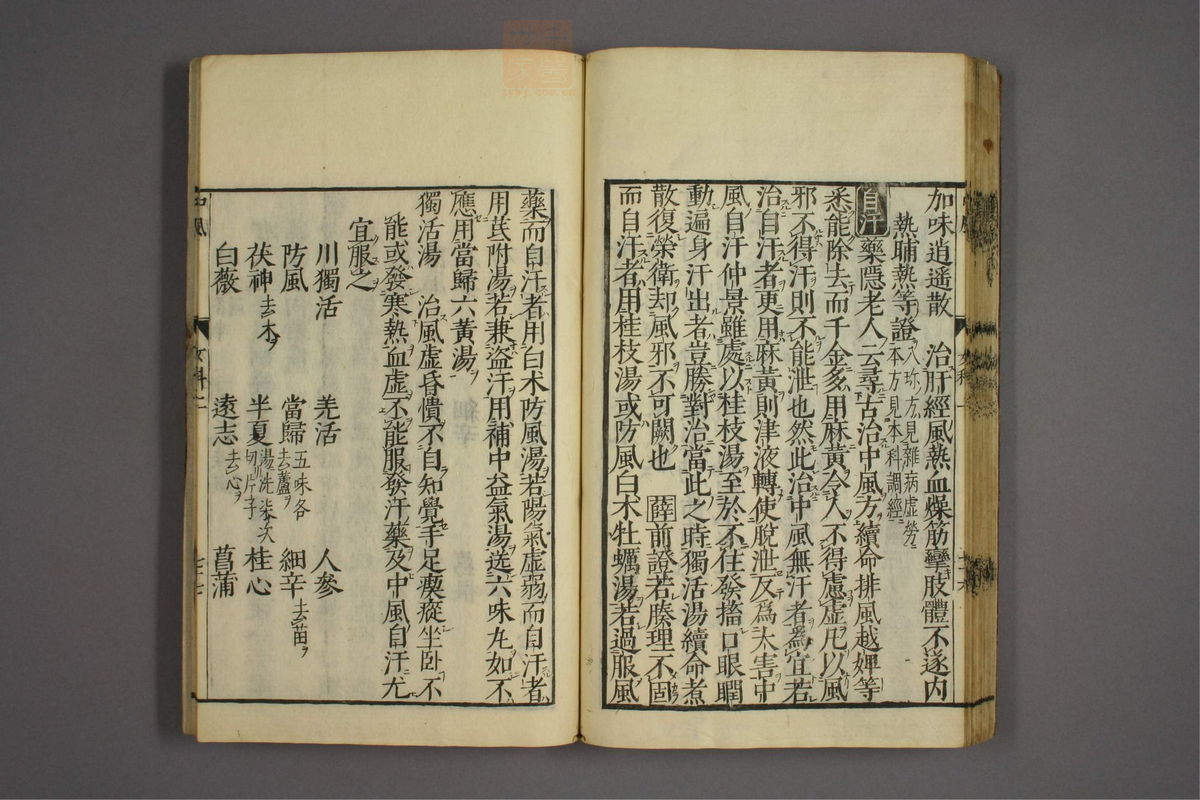 加味逍遙散　治肝經風熱血燥筋攣肢體不遂内
熱晡熱等證
八珎方見雜病虛勞
本方見本科調經
自汗　藥隱老人云尋古治中風方續命排風越婢等
悉能除去而千金多用麻黃令人不得慮虛凡以風
邪不得汗則不能泄也然此治中風無汗者爲宜若
治自汗者更用麻黃則津液轉使脫泄反爲大害中
風自汗仲景雖處以桂枝湯至於不住發搐口眼瞤
動遍身汗出者豈勝對治當此之時獨活湯續命煮
散復榮衛却風邪不可闕也　薛前證若腠理不固
而自汗者用桂枝湯或防風白术牡蠣湯若過服風
藥而自汗者用白术防風湯若陽氣虛弱而自汗者
用芪附湯若兼盜汗用補中益氣湯送六味丸如不
應用當歸六黃湯
獨活湯　治風虛昏憒不自知覺手足瘈瘲坐卧不
能或發寒熱血虛不能服發汗藥及中風自汗尤
宜服之
川獨活　羌活　人參
防風　當歸五味各去蘆ヲ　細辛去苗ヲ
茯神去木ヲ　半夏湯洗柒次切片子　桂心
白薇　遠志去心ヲ　菖蒲
女科二